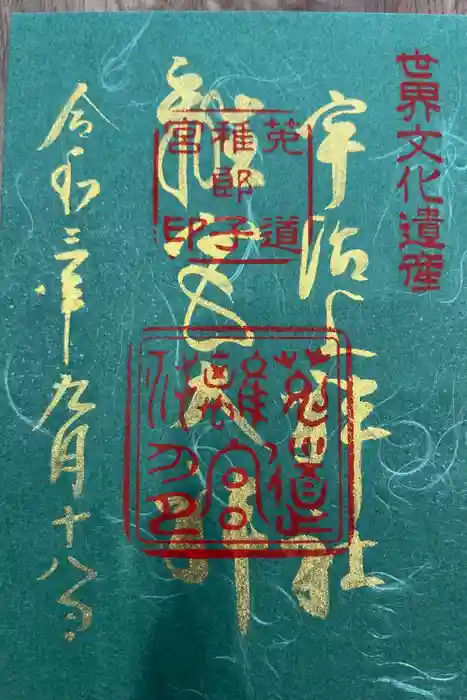 世界文化遺産
宇治上神社
離宮
菟道
稚郎子
宮印
令和三年九月十八日